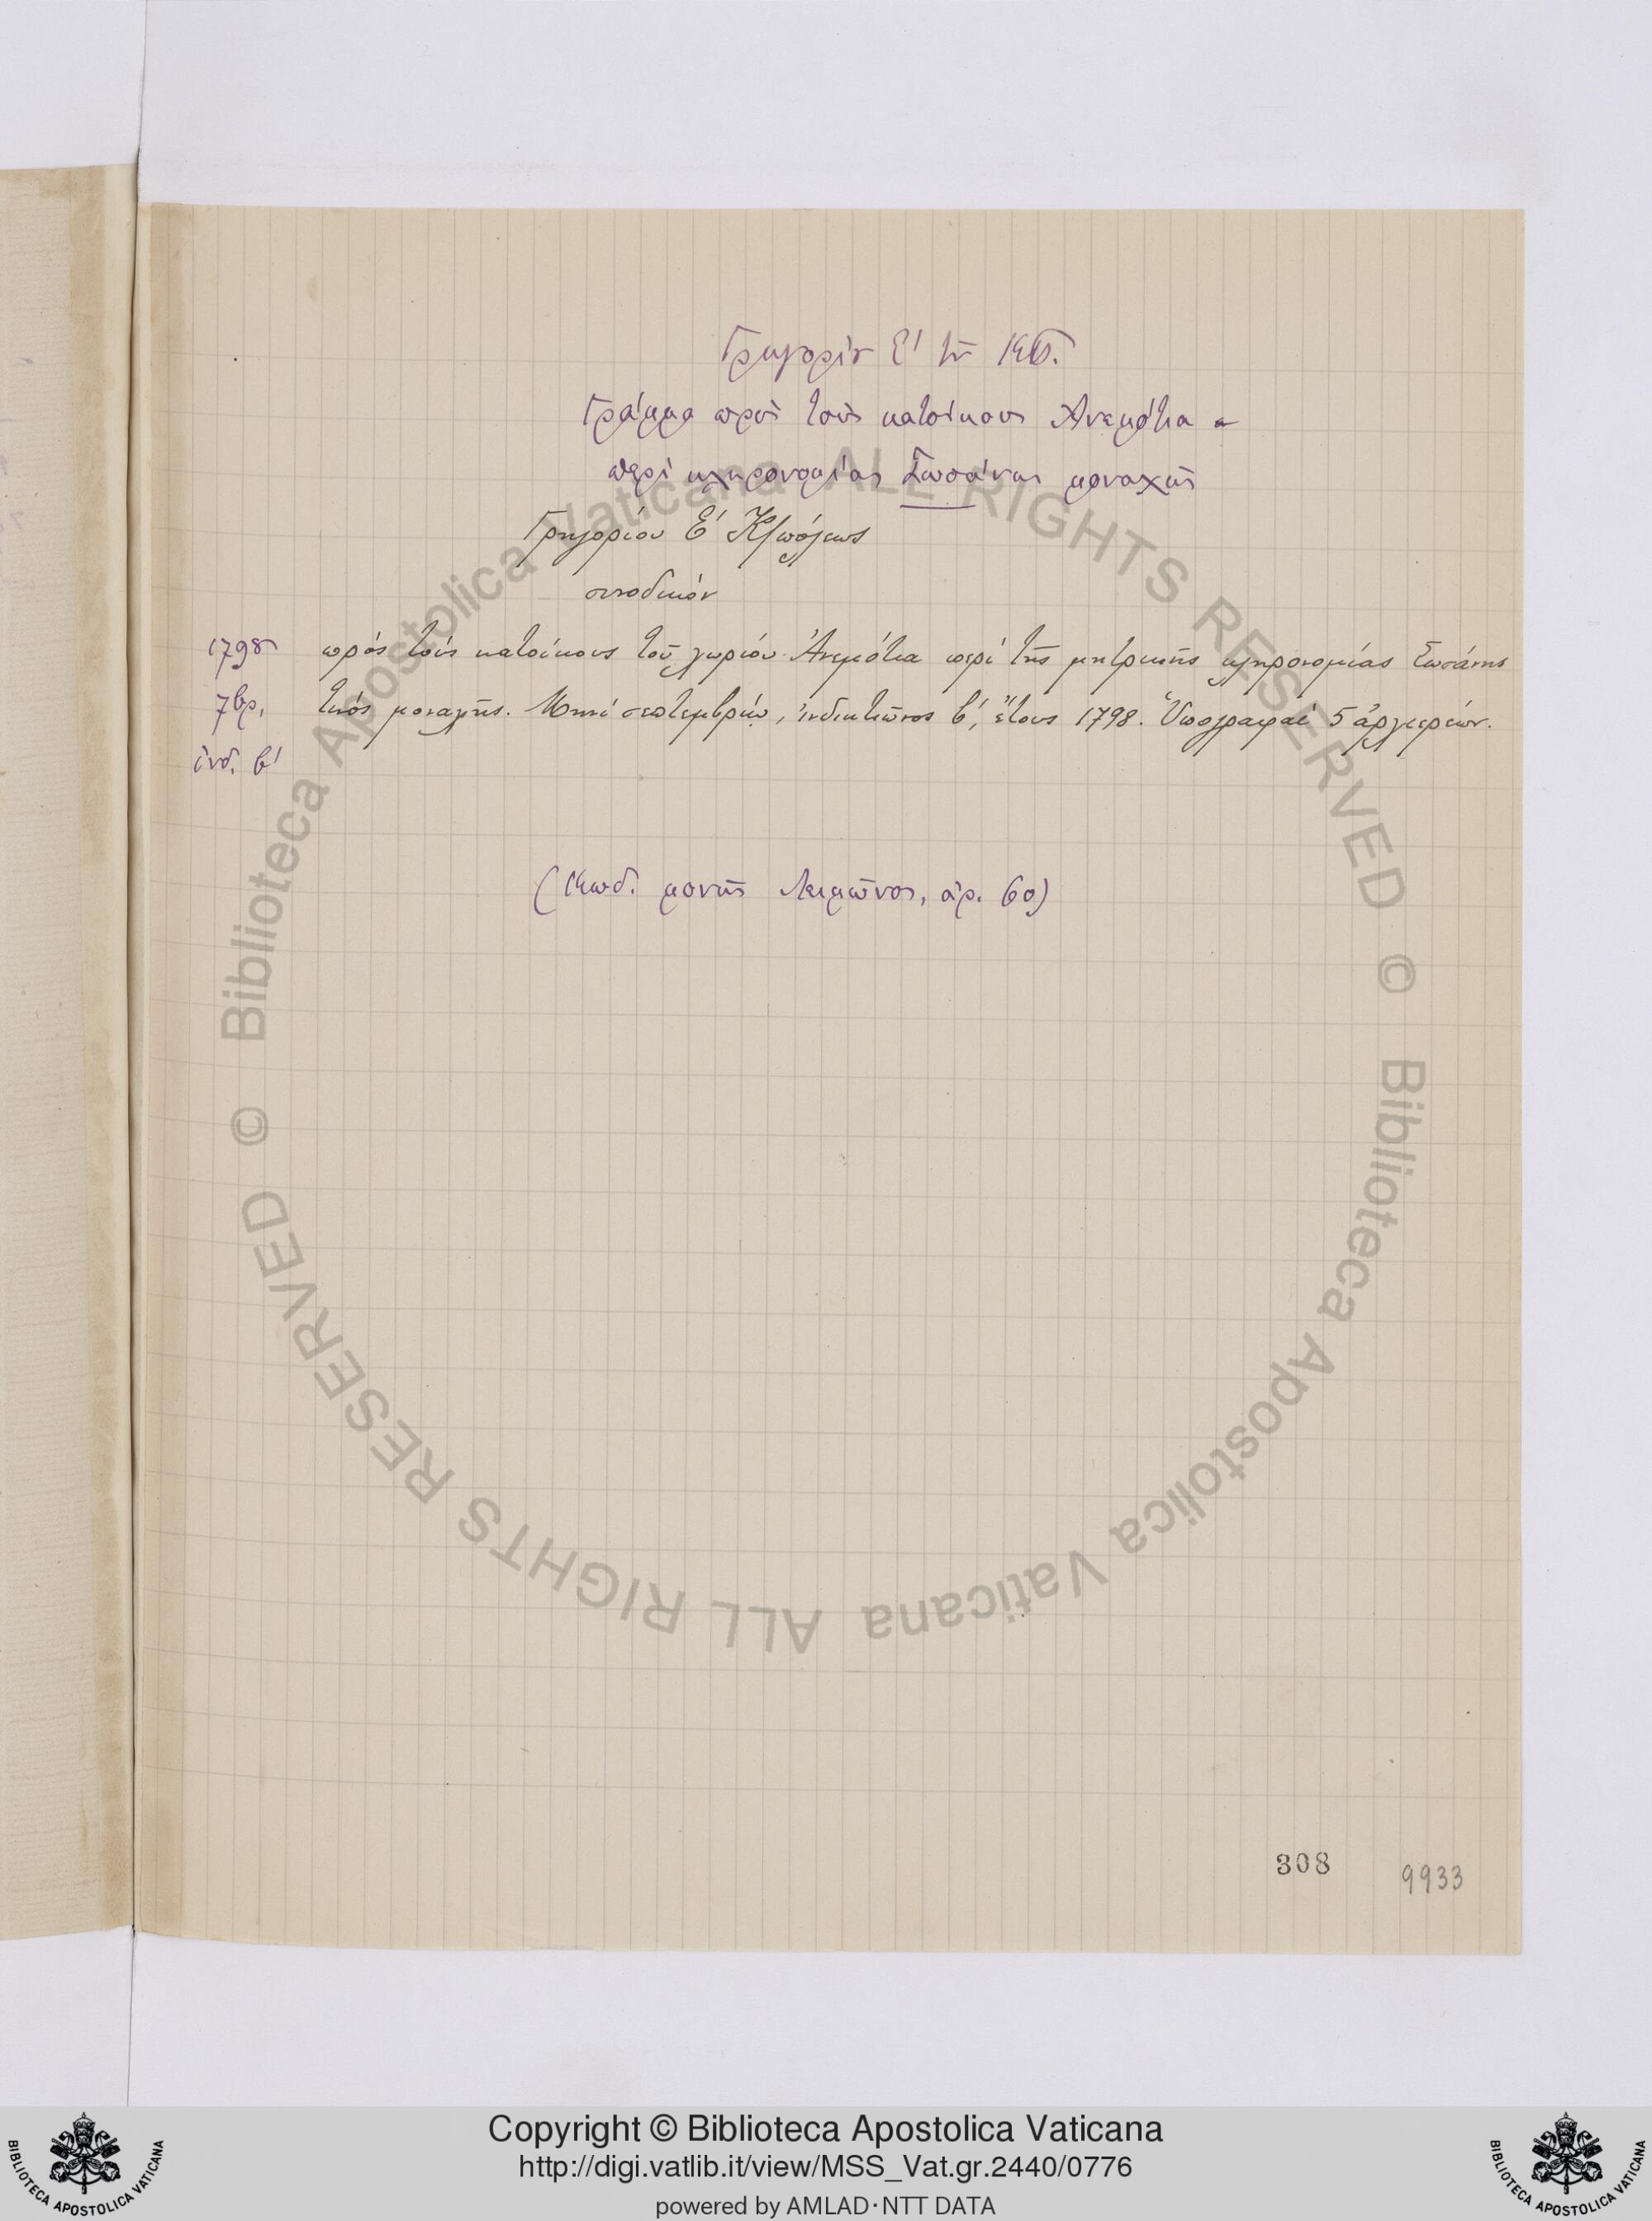 Γρηγορίου Ε' τοῦ ΚΠ.
Γράμμα πρὸς τοὺς κατοίκους Ἀνεμότια
περὶ κληρονομίας Σωσάνας μοναχῆς
Γρηγορίου Ε' Κ/πόλεως
συνοδικόν
1798 πρὸς τοὺς κατοίκους τοῦ χωρίου Ἀνεμότια περὶ τῆς μητρικῆς κληρονομίας Σωσάνης
7βρ. τινός μοναχῆς. Μηνὶ σεπτεμβρίῳ, ἰνδικτιῶνος β', ἔτους 1798. Ὑπογραφαὶ 5 ἀρχιερέων.
ἰνδ. β'
(Κωδ. μονῆς Λειμῶνος, ἀρ. 60)
308 9933
© Biblioteca Apostolica Vaticana ALL RIGHTS RESERVED
© Biblioteca Apostolica Vaticana ALL RIGHTS RESERVED
Copyright © Biblioteca Apostolica Vaticana
http://digi.vatlib.it/view/MSS_Vat.gr.2440/0776
powered by AMLAD·NTT DATA
BIBLIOTECA APOSTOLICA VATICANA
BIBLIOTECA APOSTOLICA VATICANA